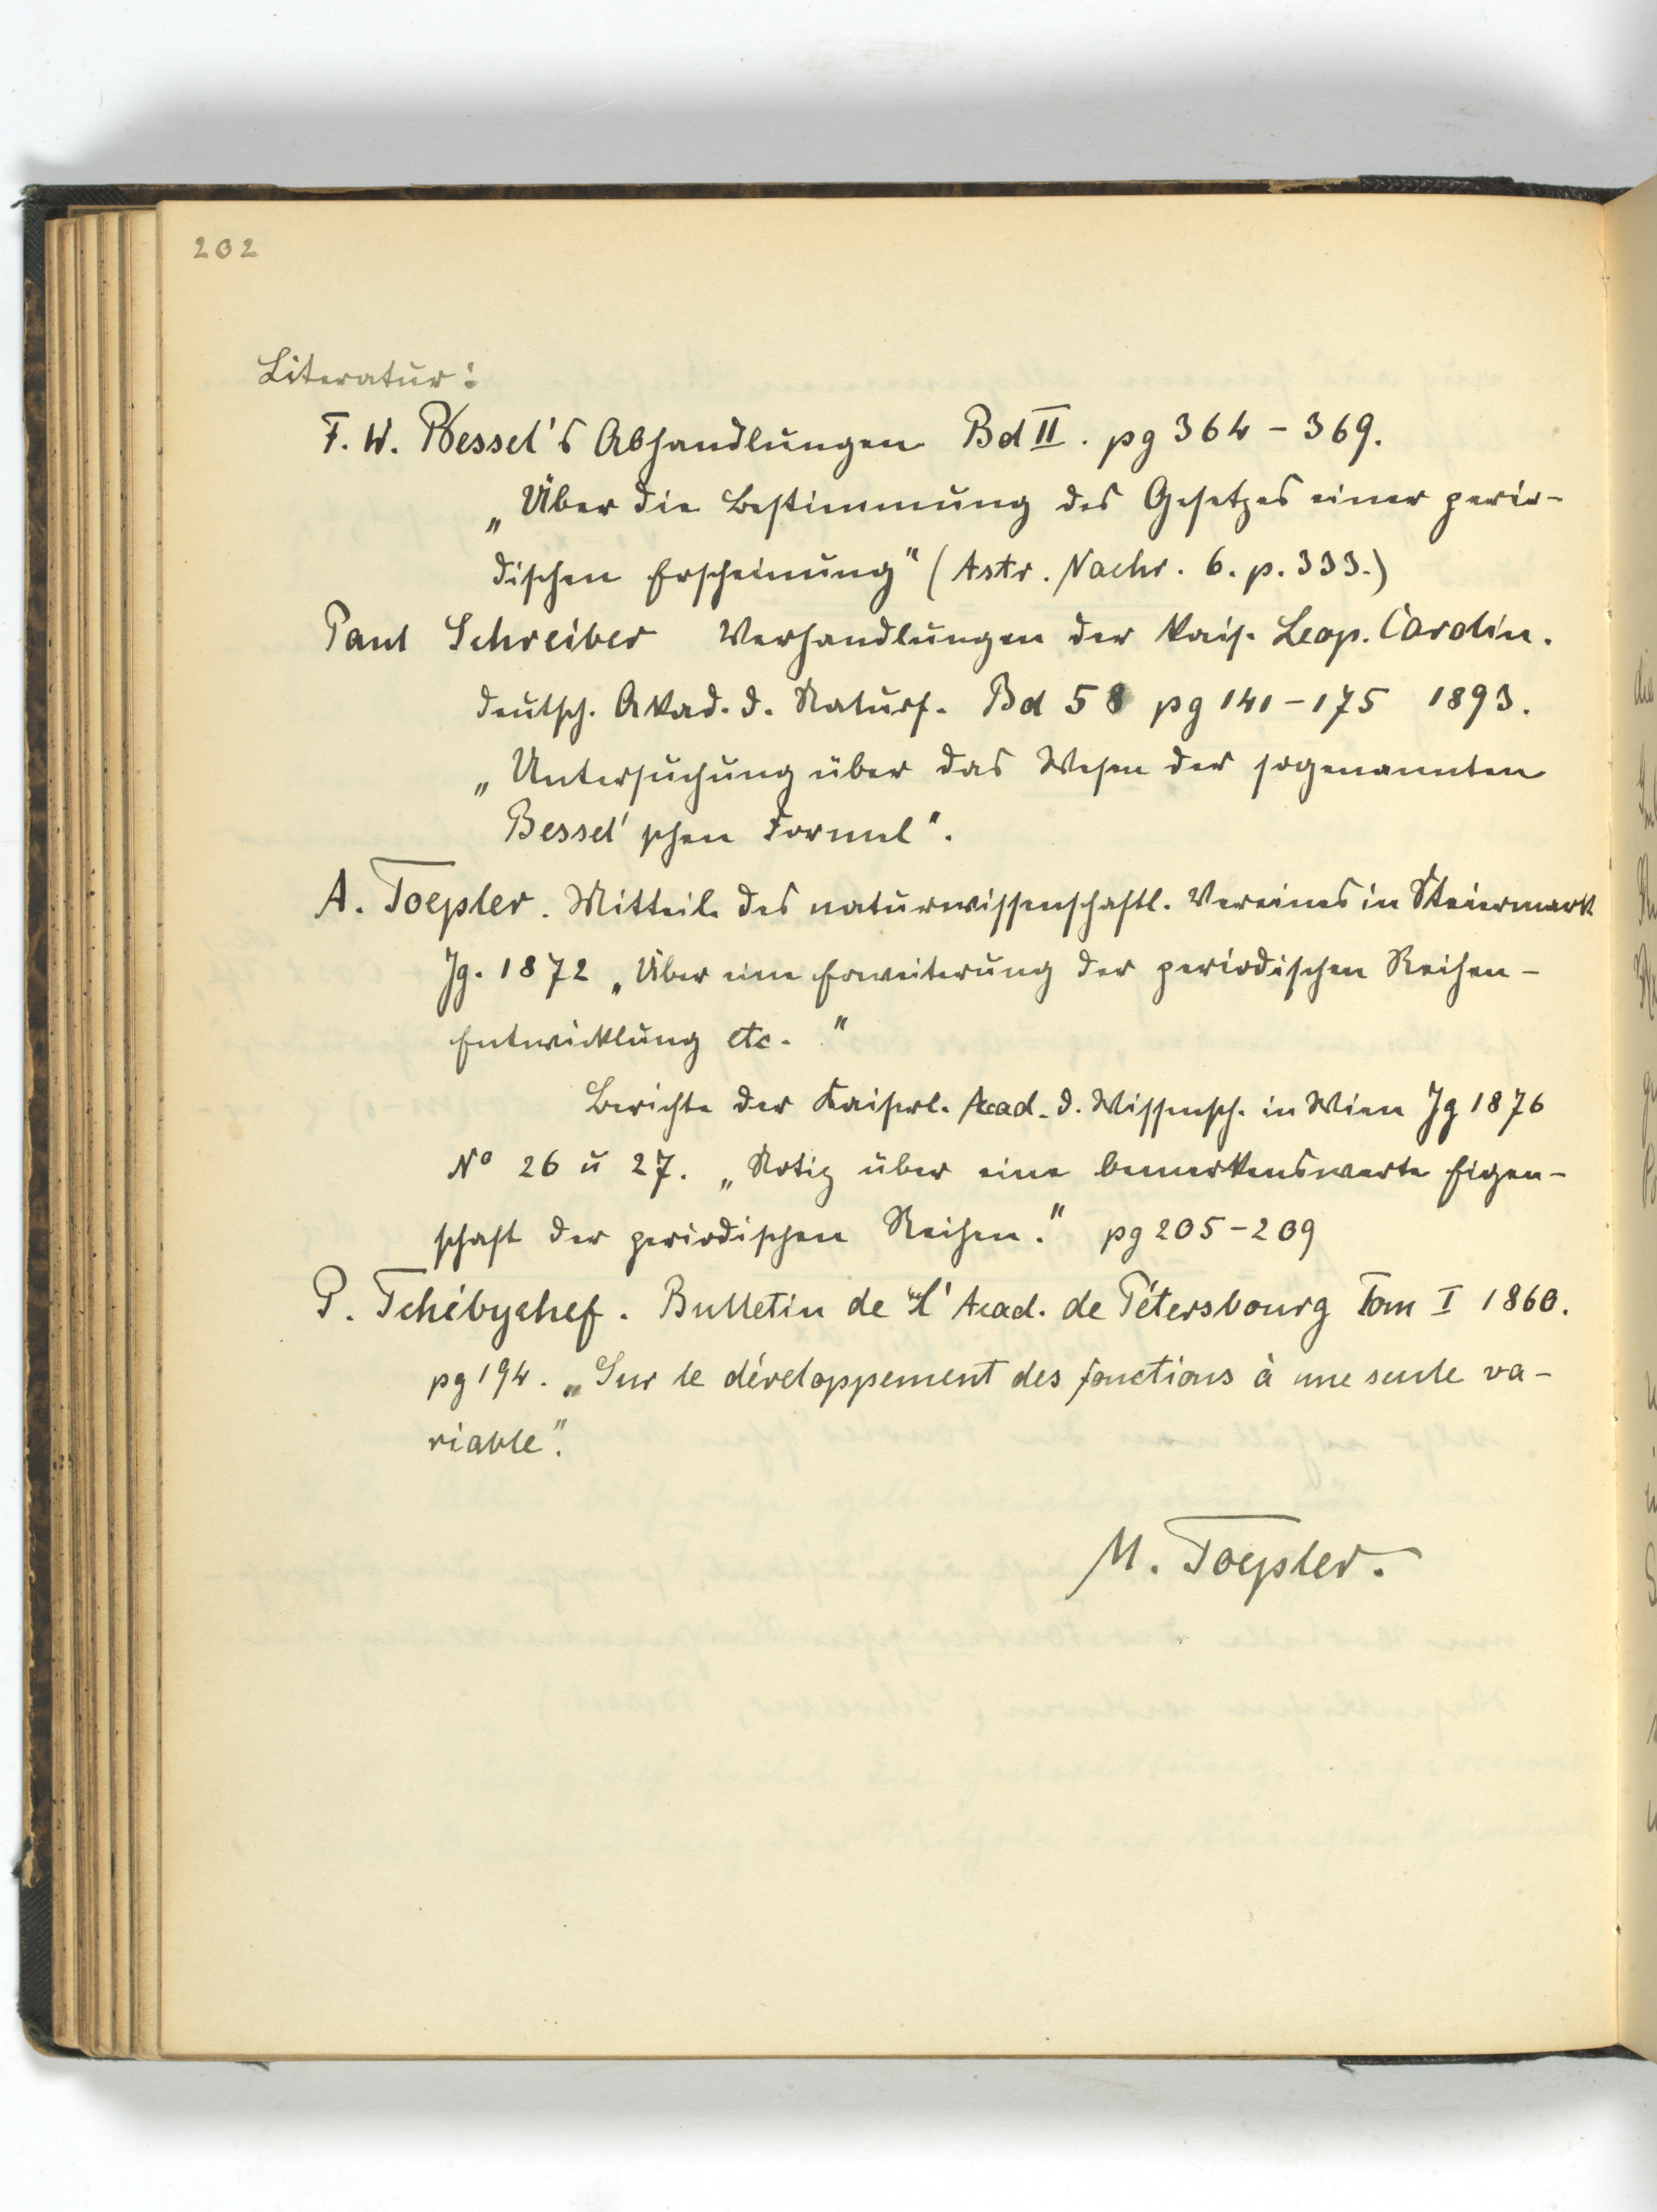 202
Literatur:
F. W. Bessel's Abhandlungen Bd II. pg 364-369.
„Über die Bestimmung des Gesetzes einer perio-
dischen Erscheinung" (Astr. Nachr. 6. p. 333.)
Paul Schreiber Verhandlungen der Kais. Leop. Carolin.
deutsch. Akad. d. Naturf. Bd 58 pg 141-175 1893.
„Untersuchung über das Wesen der sogenannten
Bessel'schen Formel".
A. Toepler. Mitteil. des naturwissenschaftl. Vereines in Steiermark
Jg. 1872 „Über eine Erweiterung der periodischen Reihen-
Entwicklung etc."
Berichte der Kaiserl. Acad. d. Wissensch. in Wien Jg 1876
No 26 u 27. „Notiz über eine bemerkenswerte Eigen-
schaft der periodischen Reihen." pg 205-209
P. Tchébychef. Bulletin de l'Acad. de Pétersbourg Tom I 1860.
pg 194. „Sur le développement des fonctions à une seule va-
riable".
M. Toepler.